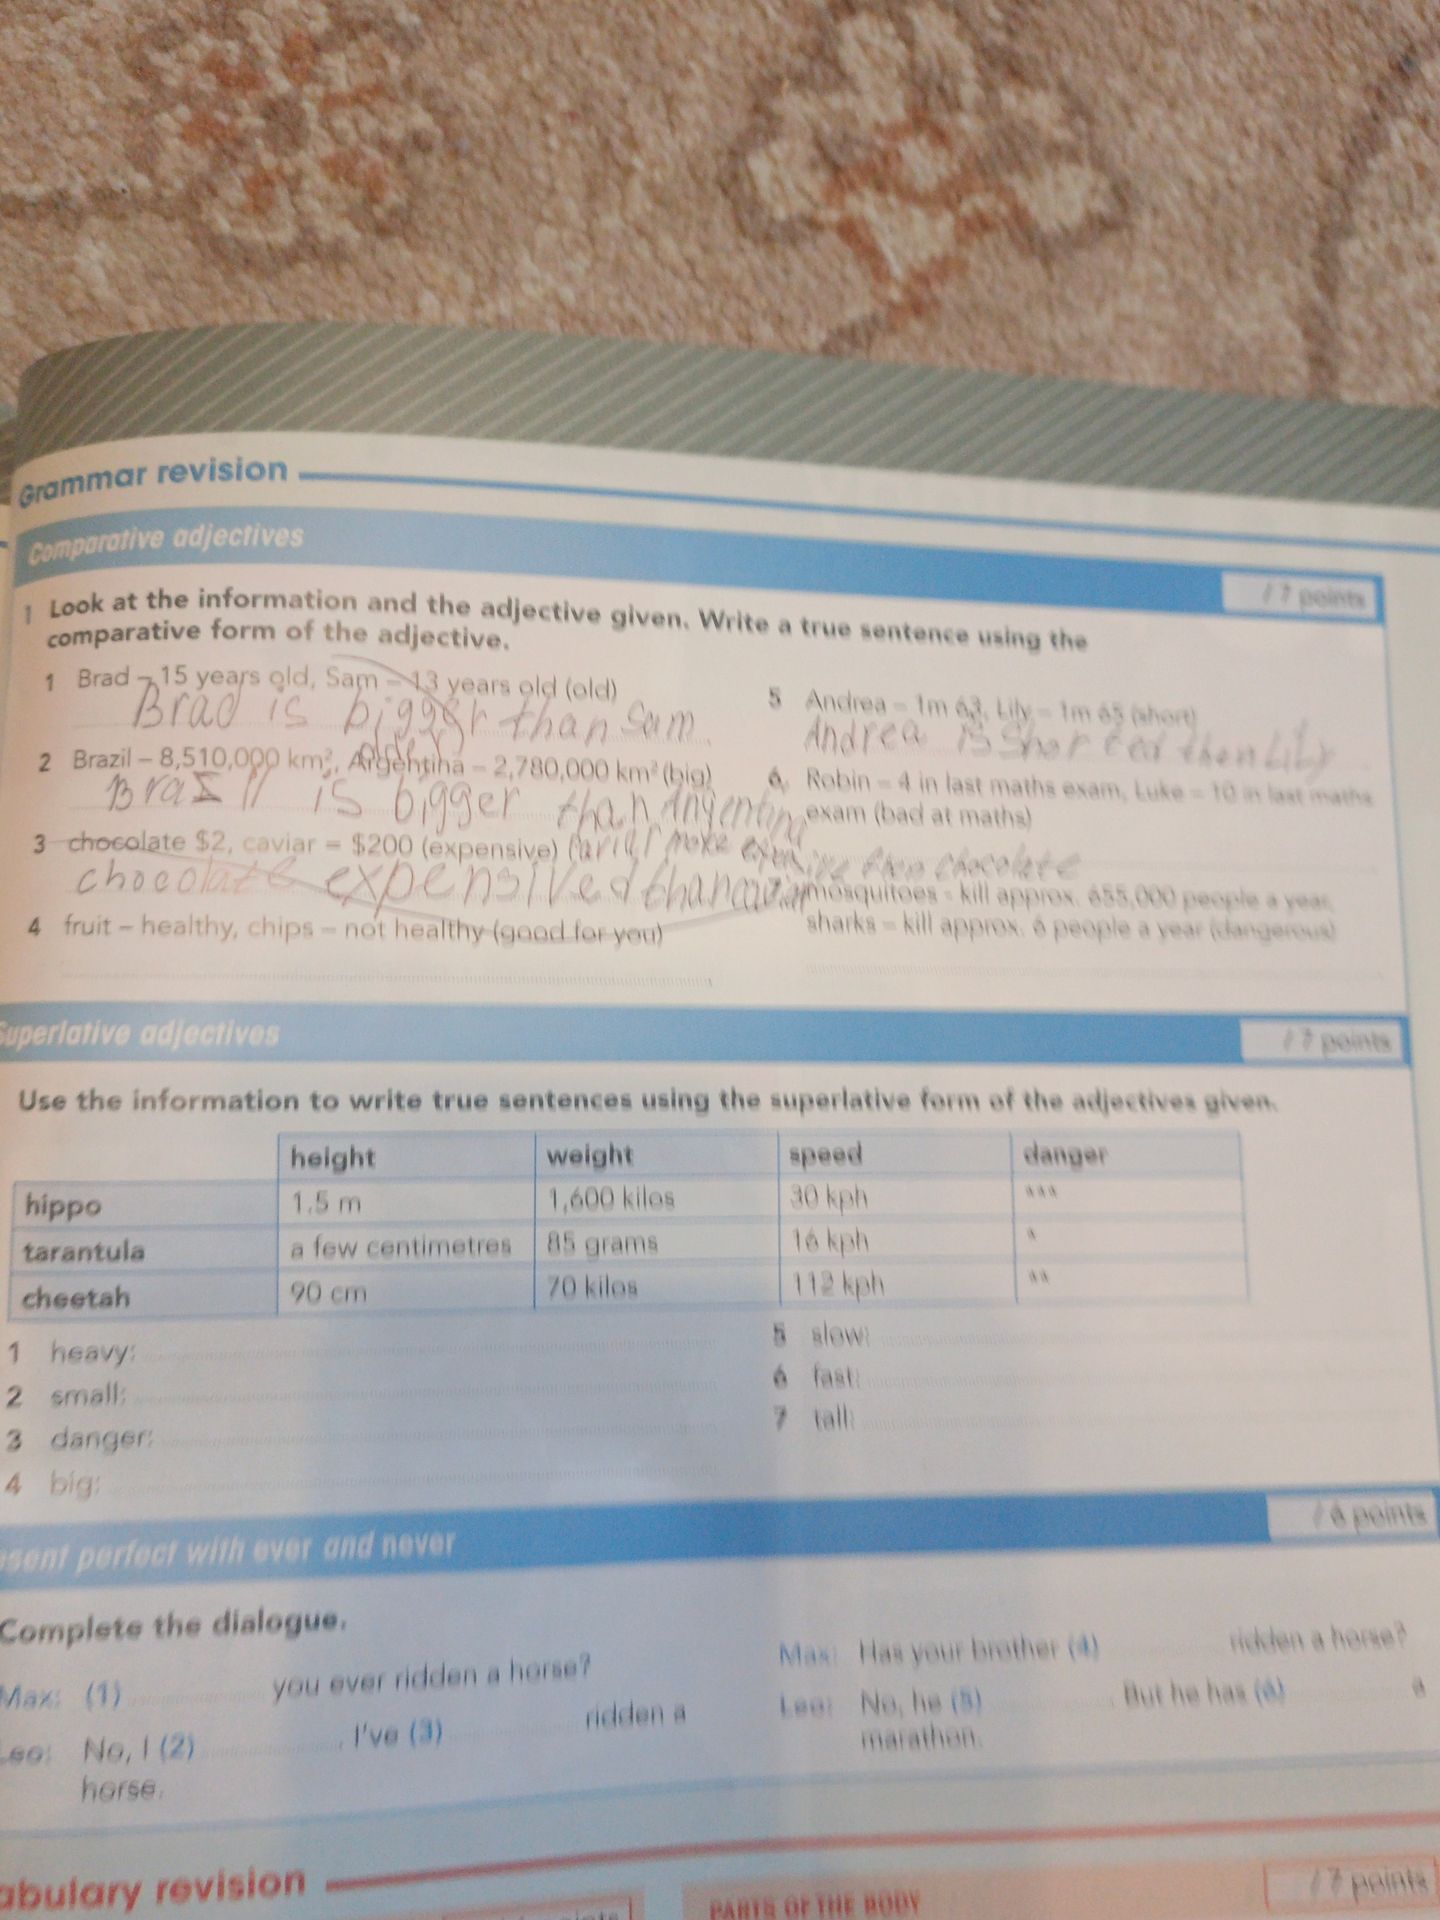 Grammar revision
Comparative adjectives
/ 7 points
1 Look at the information and the adjective given. Write a true sentence using the
comparative form of the adjective.
1 Brad – 15 years old, Sam – 13 years old (old)
Brad is bigger than Sam
older
2 Brazil – 8,510,000 km², Argentina – 2,780,000 km² (big)
Brazil is bigger than
3 chocolate $2, caviar = $200 (expensive)
more than chocolate
chocolate expensived than
4 fruit – healthy, chips – not healthy (good for you)
5 Andrea – 1m 63, Lily – 1m 65 (short)
Andrea is then Lily
6 Robin – 4 in last maths exam, Luke – 10 in last maths
exam (bad at maths)
mosquitoes - kill approx. 655,000 people a year,
sharks – kill approx. 6 people a year (dangerous)
Superlative adjectives
/ 7 points
Use the information to write true sentences using the superlative form of the adjectives given.
height weight speed danger
hippo 1.5 m 1,600 kilos 30 kph ***
tarantula a few centimetres 85 grams 16 kph *
cheetah 90 cm 70 kilos 112 kph **
1 heavy:
2 small:
3 danger:
4 big:
5 slow:
6 fast:
7 tall:
esent perfect with ever and never
/ 6 points
Complete the dialogue.
Max: (1) you ever ridden a horse?
Leo: No, I (2) . I've (3) ridden a
horse.
Max: Has your brother (4) ridden a horse?
Leo: No, he (5) . But he has (6) a
marathon.
abulary revision
PARTS OF THE BODY
/ 7 points